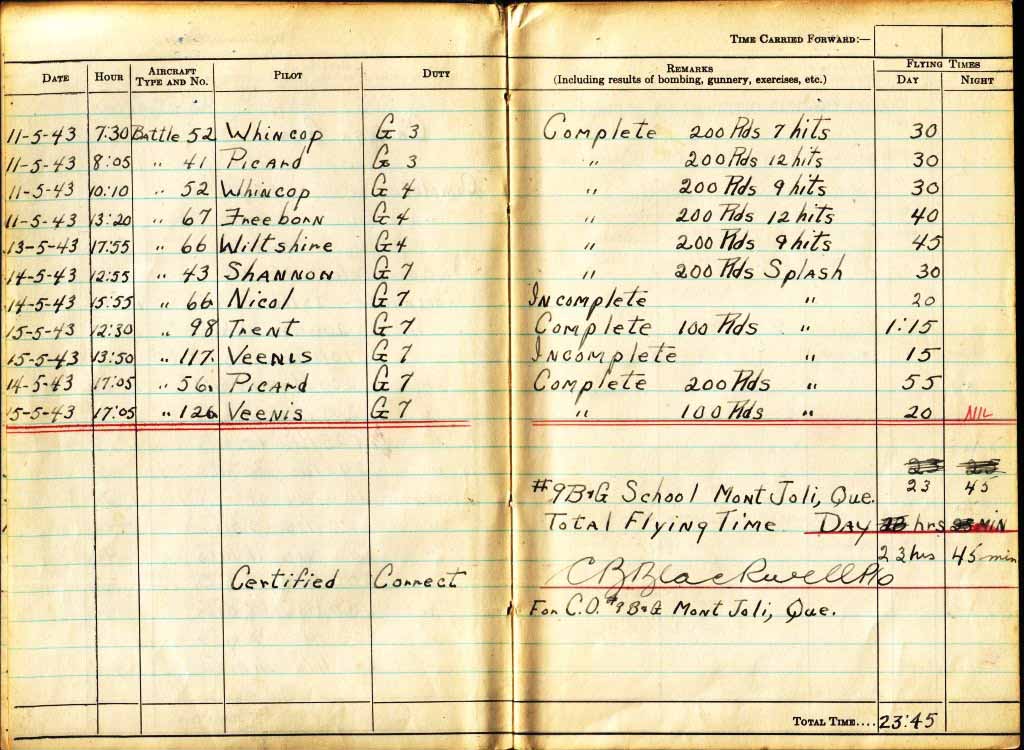 TIME CARRIED FORWARD:—
DATE HOUR AIRCRAFT TYPE AND NO. PILOT DUTY REMARKS (Including results of bombing, gunnery, exercises, etc.) FLYING TIMES DAY NIGHT
11-5-43 7:30 Battle 52 Whincop G 3 Complete 200 Rds 7 hits 30
11-5-43 8:05 " 41 Picard G 3 " 200 Rds 12 hits 30
11-5-43 10:10 " 52 Whincop G 4 " 200 Rds 9 hits 30
11-5-43 13:20 " 67 Freeborn G 4 " 200 Rds 12 hits 40
13-5-43 17:55 " 66 Wiltshire G 4 " 200 Rds 9 hits 45
14-5-43 12:55 " 43 SHANNON G 7 " 200 Rds Splash 30
14-5-43 15:55 " 66 Nicol G 7 Incomplete " 20
15-5-43 12:30 " 98 Trent G 7 Complete 100 Rds " 1:15
15-5-43 13:50 " 117 Veenis G 7 Incomplete " 15
14-5-43 17:05 " 56 Picard G 7 Complete 200 Rds " 55
15-5-43 17:05 " 126 Veenis G 7 " 100 Rds " 20 NIL
#9 B&G School Mont Joli, Que. 23 45
Total Flying Time Day hrs MIN
23 hrs 45 min
Certified Correct C B Blackwell P/O
For C.O. #9 B&G Mont Joli, Que.
TOTAL TIME.... 23:45